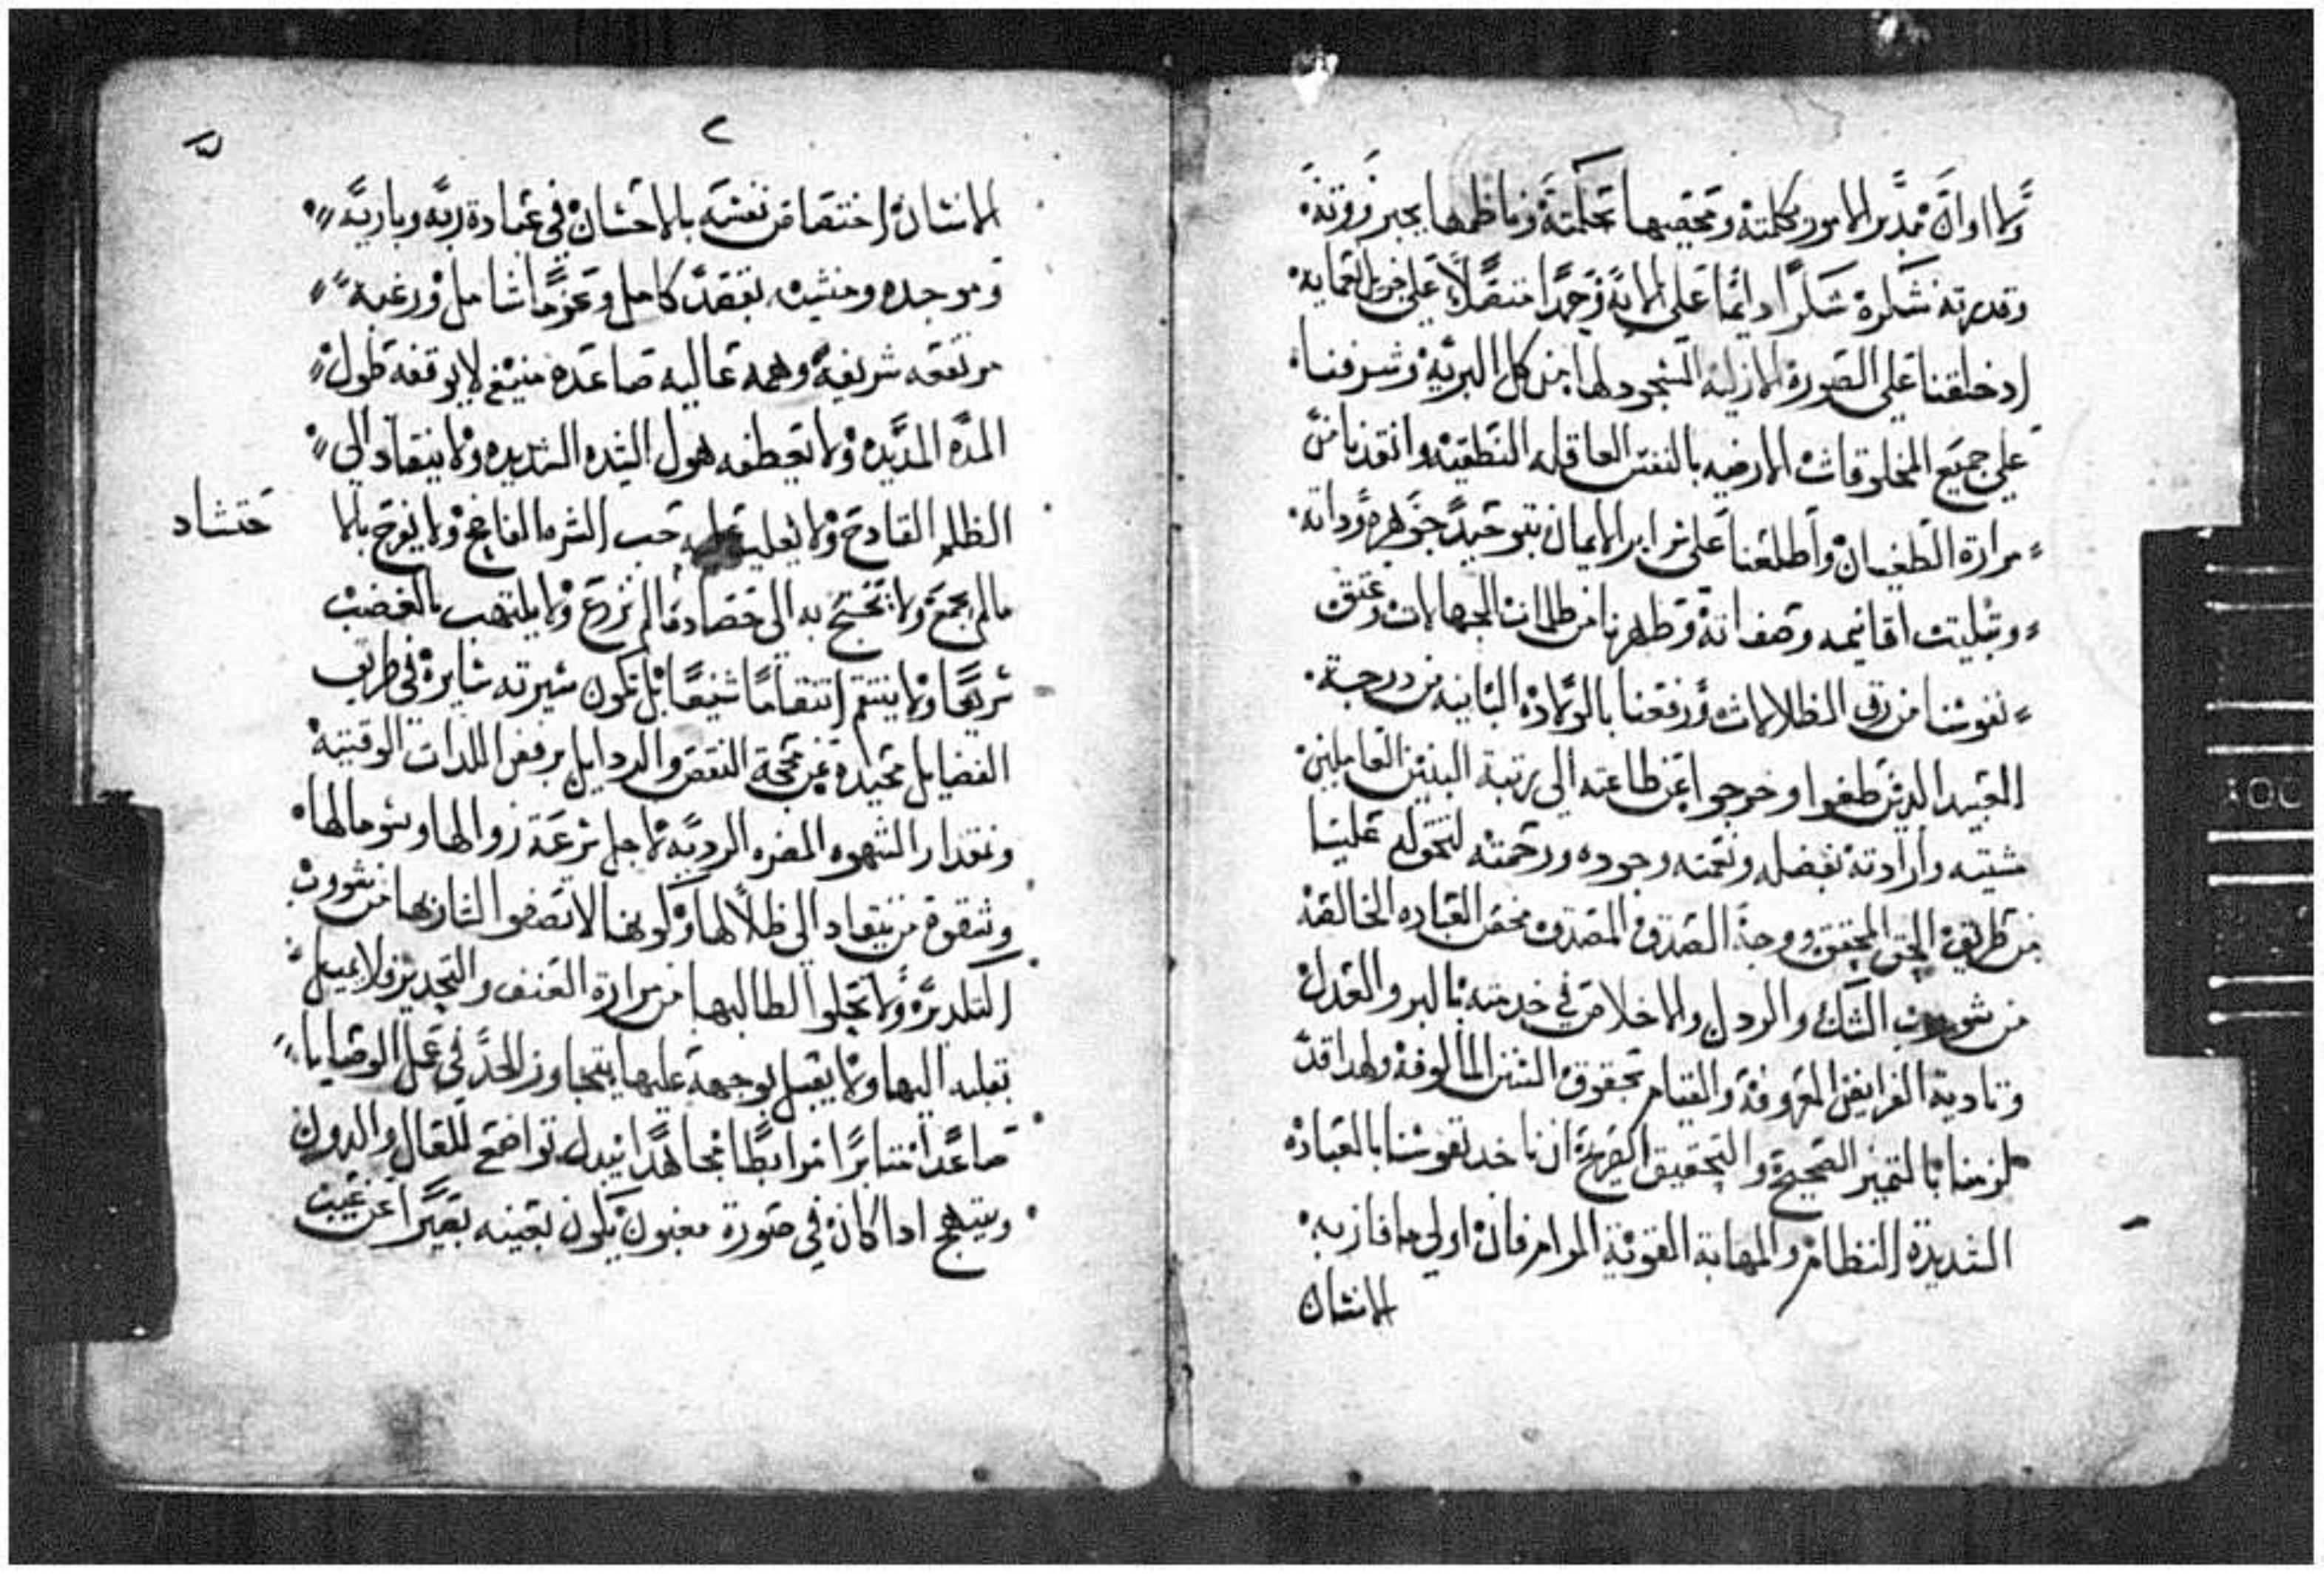 ولا اوان مدبر الامور بكلمته ومحصيها بحكمته وناظمها بجبروته
وقدرته نشكره شكرًا دايمًا على الايه وحمدًا متصلًا على جزيل نعمايه
اد خلقنا على الصورة الازليه المسجود لها من كل البريه وشرفنا
على جميع المخلوقات الارضيه بالنفس العاقله النطقيه وانقدنا من
مرارة الطغيان واطلعنا على سراير الايمان بتوحيد جوهره وداته
وتثليت اقانيمه وصفاته وطهرنا من ظلمات الجهالات وعتق
نفوسنا من رق الضلالات ورفعنا بالولاده التانيه من درجة
العبيد الدين طغوا وخرجوا عن طاعته الى رتبة البنين العاملين
مشيته وارادته بفضله ونعمته وجوده ورحمته لتحوله علينا
من طريق الحق المحقق ووجة الصدق المصدق محض العباده الخالصه
من شووب الشك والردل والاخلاص في خدمته بالبر والعدل
وتادية الفرايض المعروفة والقيام بحقوق السنن المالوفه ولهدا قد
لزمنا بالتمييز الصحيح والتحقيق الصريح ان ناخد نفوسنا بالعباده
الشديدة النظام والمهابة القوية المرام فان اولى ما فاز به
الانسان
٢
الانسان اختصاص نفسه بالاحسان في عبادة ربه وباريه
وموجده ومنشيه بقصد كامل وعزمًا شامل ورغبه
مرتفعه شريفة وهمه عاليه صاعده منيع لا يوقفه طول
المده المديده ولا تعطفه هول الشده الشديده ولا ينقاد الى
الظلم القادح ولا يغلب عليه حب الشره الفاضح ولا يفرح بالا
حتشاد
مالم يجمع ولا تحتج به الى حصاد مالم نزرع ولا يلتهب بالغضب
سريعًا ولا ينتقم انتقامًا شنيعًا بل تكون سيرته سايرة في طريق
الفضايل محيدة عن محجة النقص والردايل برفض اللدات الوقتيه
ومقدار الشهوه المضره الرديه لاجل سرعة زوالها وسو مالها
وشقوة من ينقاد الى ظلالها وكونها لا تصفوا لشاربها من شووب
التكدير ولا تخلوا لطالبها من مرارة العنف والتحدير فلا يميل
بقلبه اليها ولا يقبل بوجهه عليها يتجاوز الحد في عمل الوصايا
صاعدًا متابرًا مرابطًا مجاهدًا يبدل تواضع للعال والدون
ويبتهج ادا كان في صورة مغبون يكون بعينه بصيرًا عن عيب